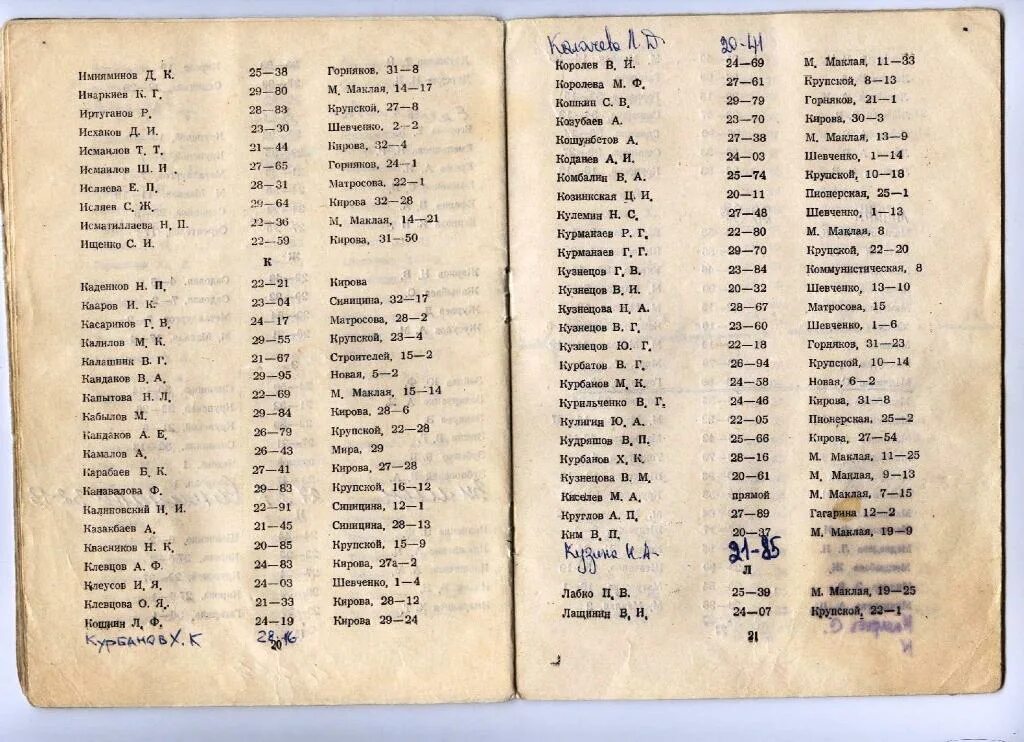 Имияминов Д. К. 25—38 Горняков, 31—8
Инаркиев К. Г. 29—80 М. Маклая, 14—17
Иртуганов Р. 28—83 Крупской, 27—8
Исхаков Д. И. 23—30 Шевченко, 2—2
Исмаилов Т. Т. 21—44 Кирова, 32—4
Исмаилов Ш. И. 27—65 Горняков, 24—1
Исляева Е. П. 28—31 Матросова, 22—1
Исляев С. Ж. 29—64 Кирова 32—28
Исматиллаева Н. П. 22—36 М. Маклая, 14—21
Ищенко С. И. 22—59 Кирова, 31—50
К
Каденков Н. П. 22—21 Кирова
Кааров И. К. 23—04 Синицина, 32—17
Касариков Г. В. 24—17 Матросова, 28—2
Калилов М. К. 29—55 Крупской, 23—4
Калашник В. Г. 21—67 Строителей, 15—2
Кандаков В. А. 29—95 Новая, 5—2
Капытова Н. Л. 22—69 М. Маклая, 15—14
Кабылов М. 29—84 Кирова, 28—6
Кандаков А. Е. 26—79 Крупской, 22—28
Камалов А. 26—43 Мира, 29
Карабаев Б. К. 27—41 Кирова, 27—28
Канавалова Ф. 29—83 Крупской, 16—12
Калиповский Н. И. 22—91 Синицина, 12—1
Казакбаев А. 21—45 Синицина, 28—13
Квасников Н. К. 20—85 Крупской, 15—9
Клевцов А. Ф. 24—83 Кирова, 27а—2
Клеусов И. Я. 24—03 Шевченко, 1—4
Клевцова О. Я. 21—33 Кирова, 28—12
Кошкин Л. Ф. 24—19 Кирова 29—24
Курбанов Х. К 28-16
20
Калачева Л. Д. 20-41
Королев В. И. 24—69 М. Маклая, 11—33
Королева М. Ф. 27—61 Крупской, 8—13
Кошкин С. В. 29—79 Горняков, 21—1
Козубаев А. 23—70 Кирова, 30—3
Кошунбетов А. 27—38 М. Маклая, 13—9
Коданев А. И. 24—03 Шевченко, 1—14
Комбалин В. А. 25—74 Крупской, 10—18
Козинкская Ц. И. 20—11 Пионерская, 25—1
Кулемин Н. С. 27—48 Шевченко, 1—13
Курманаев Р. Г. 22—80 М. Маклая, 8
Курманаев Г. Г. 29—70 Крупской, 22—20
Кузнецов Г. В. 23—84 Коммунистическая, 8
Кузнецов В. И. 20—32 Шевченко, 13—10
Кузнецова Н. А. 28—67 Матросова, 15
Кузнецов В. Г. 23—60 Шевченко, 1—6
Кузнецов Ю. Г. 22—18 Горняков, 31—23
Курбатов В. Г. 26—94 Крупской, 10—14
Курбанов М. К. 24—58 Новая, 6—2
Курильченко В. Г. 24—46 Кирова, 31—8
Кулигин Ю. А. 22—05 Пионерская, 25—2
Кудряшов В. П. 25—66 Кирова, 27—54
Курбанов Х. К. 28—16 М. Маклая, 11—25
Кузнецова В. М. 20—61 М. Маклая, 9—13
Киселев М. А. прямой М. Маклая, 7—15
Круглов А. П. 27—89 Гагарина 12—2
Ким В. П. 20—37 М. Маклая, 19—9
Кузина Н. А. 21-85
Л
Лабко П. В. 25—39 М. Маклая, 19—25
Лащинин В. И. 24—07 Крупской, 22—1
21